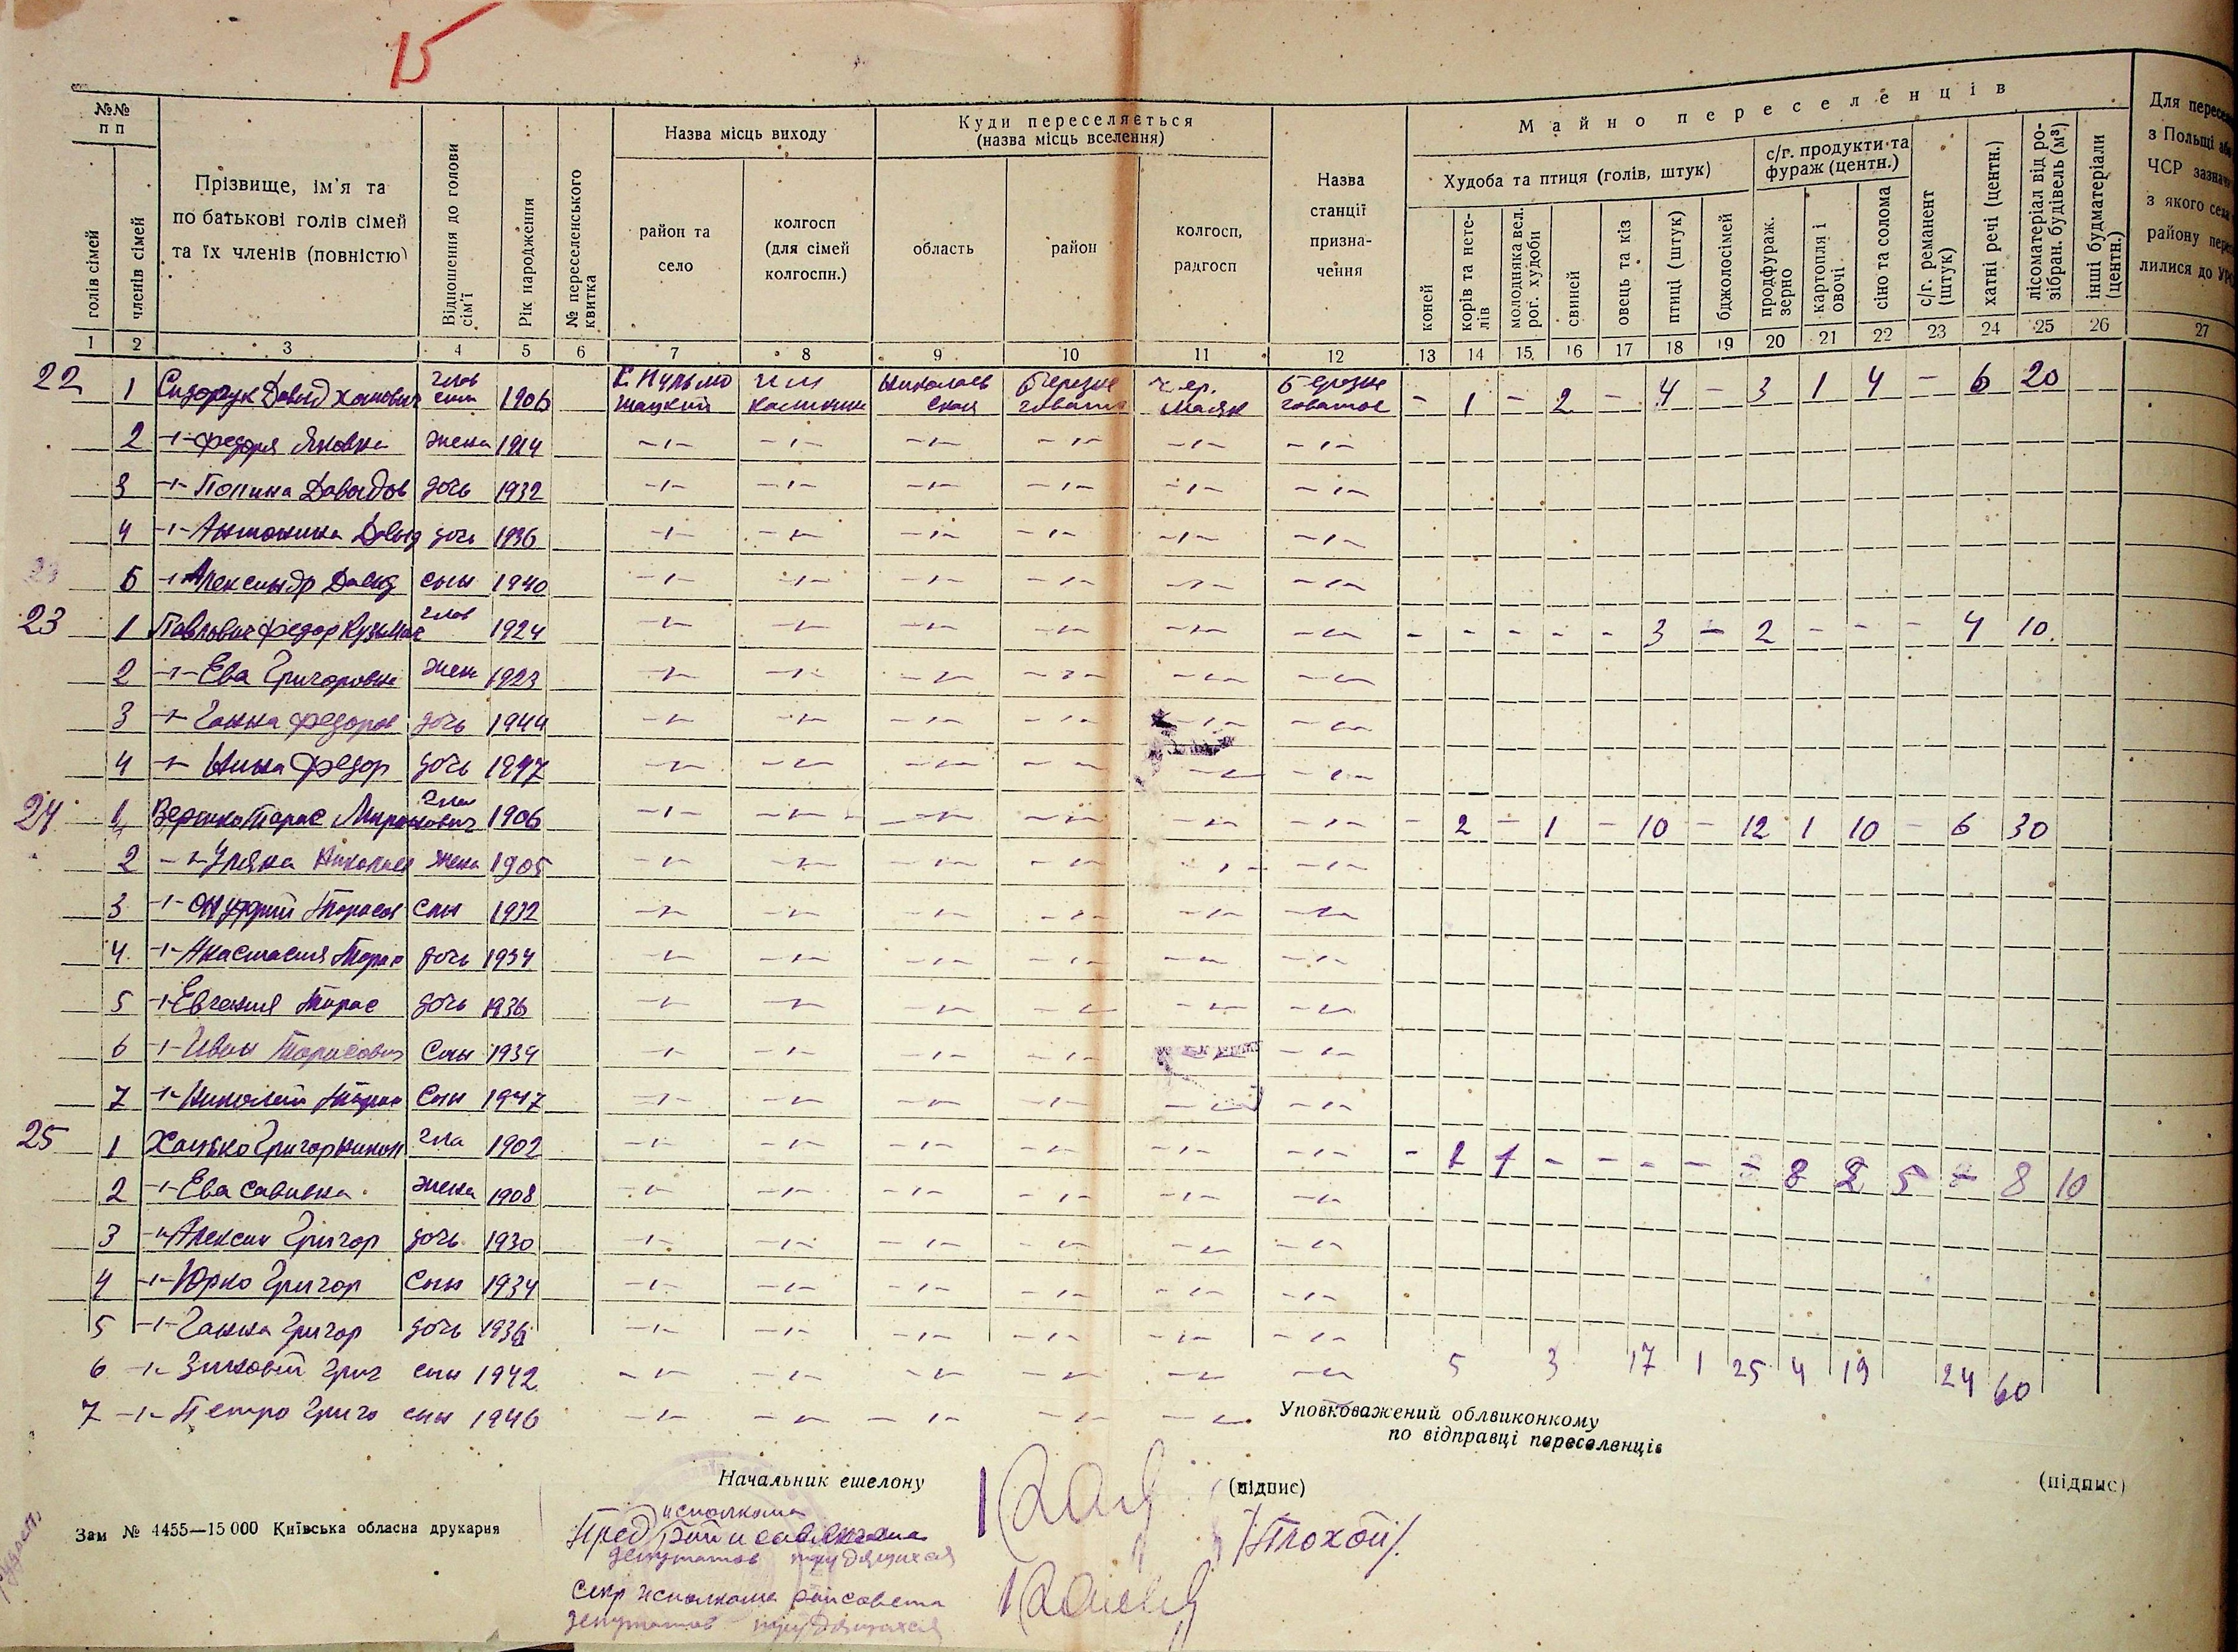 15
№№ п п
голів сімей
членів сімей
Прізвище, ім'я та по батькові голів сімей та їх членів (повністю)
Відношення до голови сім'ї
Рік народження
№ переселенського квитка
Назва місць виходу
район та село
колгосп (для сімей колгоспн.)
Куди переселяється (назва місць вселення)
область
район
колгосп, радгосп
Назва станції призна-чення
Майно переселенців
Худоба та птиця (голів, штук)
коней
корів та нете-лів
молодняка вел. рог. худоби
свиней
овець та кіз
птиці (штук)
бджолосімей
с/г. продукти та фураж (центн.)
продфураж. зерно
картопля і овочі
сіно та солома
с/г. реманент (штук)
хатні речі (центн.)
лісоматеріал від ро-зібран. будівель (м³)
інші будматеріали (центн.)
Для пересе
з Польщі
ЧСР зазнач
з якого села
району
лилися до УРС
1 2 3 4 5 6 7 8 9 10 11 12 13 14 15 16 17 18 19 20 21 22 23 24 25 26 27
22 1 Сидорук Давыд 1906 Николаев ская - 1 - 2 - 4 - 3 1 4 - 6 20
2 -"- Федоря Яковл жена 1914 -"- -"- -"- -"- -"- -"-
3 -"- Полина Давыдов дочь 1932 -"- -"- -"- -"- -"- -"-
4 -"- Антонина Давыд дочь 1936 -"- -"- -"- -"- -"- -"-
5 -"- Александр Давыд сын 1940 -"- -"- -"- -"- -"- -"-
23 1 Павлович Федор Кузьмич глов 1924 -"- -"- -"- -"- -"- -"- - - - - - 3 - 2 - - - 4 10
2 -"- Ева Григоровна жен 1923 -"- -"- -"- -"- -"- -"-
3 -"- Ганна Федоров дочь 1944 -"- -"- -"- -"- -"- -"-
4 -"- Нина Федор дочь 1947 -"- -"- -"- -"- -"- -"-
24 1 Тарас Миронович 1906 -"- -"- -"- -"- -"- -"- - 2 - 1 - 10 - 12 1 10 - 6 30
2 -"- Уляна Николаев жена 1905 -"- -"- -"- -"- -"- -"-
3 -"- Онуфрий Тарасов Сын 1932 -"- -"- -"- -"- -"- -"-
4 -"- Анастасия Тарас дочь 1934 -"- -"- -"- -"- -"- -"-
5 -"- Евгения Тарас дочь 1936 -"- -"- -"- -"- -"- -"-
6 -"- Иван Тарасович Сын 1939 -"- -"- -"- -"- -"- -"-
7 -"- Николай Тарас Сын 1947 -"- -"- -"- -"- -"- -"-
25 1 Григор гла 1902 -"- -"- -"- -"- -"- -"- - 2 1 - - - - - 8 2 5 - 8 10
2 -"- Ева Савивна жена 1908 -"- -"- -"- -"- -"- -"-
3 -"- Алексин Григор дочь 1930 -"- -"- -"- -"- -"- -"-
4 -"- Юрко Григор Сын 1934 -"- -"- -"- -"- -"- -"-
5 -"- Ганна Григор дочь 1936 -"- -"- -"- -"- -"- -"-
6 -"- Зиновий Григ сын 1942 -"- -"- -"- -"- -"- -"- 5 3 17 1 25 4 19 24 60
7 -"- Петро Григо сын 1946 -"- -"- -"- -"- -"-
Уповноважений облвиконкому
по відправці переселенців
Начальник ешелону
(підпис)
(підпис)
исполкома
Пред
депутатов трудящихся
/Плохой/
Зам № 4455—15 000 Київська обласна друкарня
Секр исполкома райсовета
депутатов трудящихся